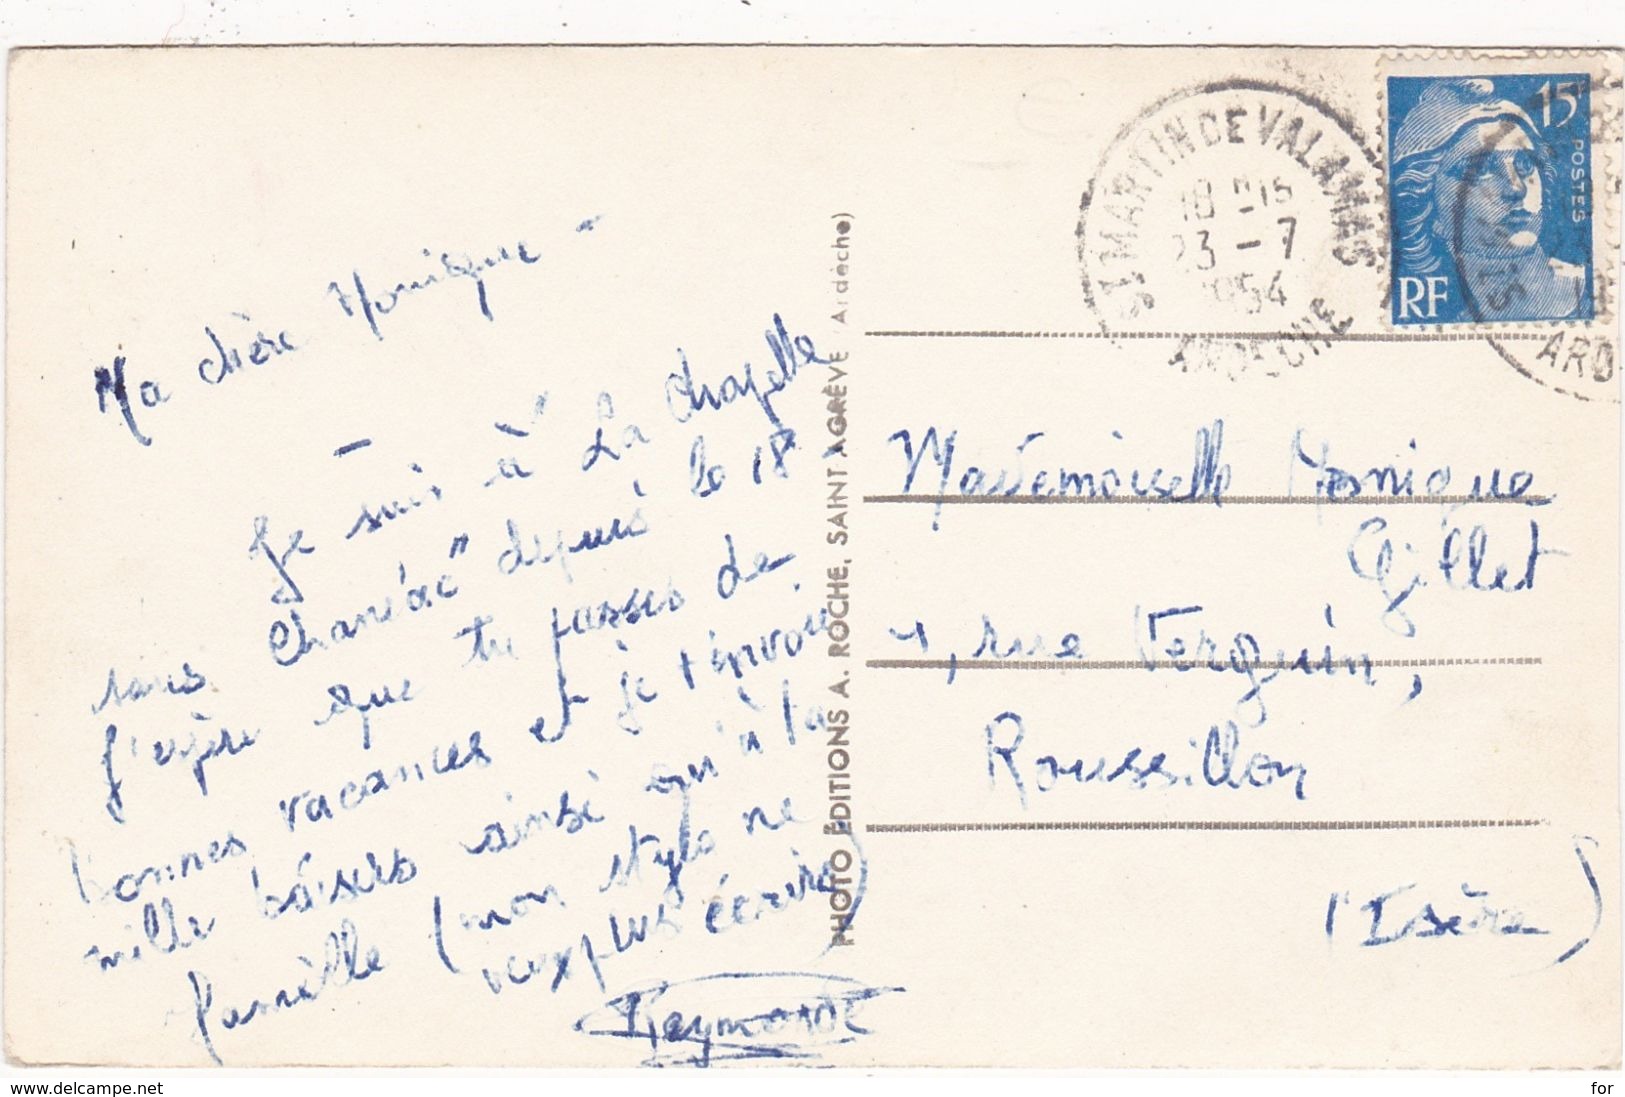 Ma chère Monique -
- Je suis à "La Chapelle
sous Chanéac" depuis le 18
J'espère que tu passes de
bonnes vacances et je t'envoie
mille baisers ainsi qu'à la
famille (mon stylo ne
veux plus écrire)
Raymonde
PHOTO ÉDITIONS A. ROCHE, SAINT AGRÈVE (Ardèche)
ST MARTIN DE VALAMAS
18 H 15
23 - 7
1954
ARDECHE
15F
POSTES
RF
ARD
Mademoiselle Monique
Gillet
rue Verguin,
Roussillon
(Isère)
www.delcampe.net
for